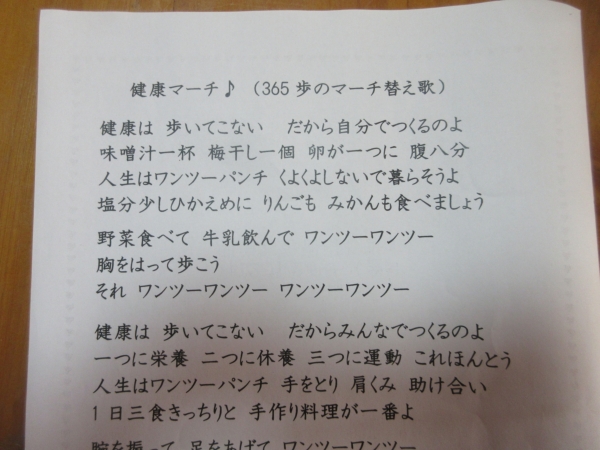 健康マーチ♪ （365歩のマーチ替え歌）
健康は 歩いてこない だから自分でつくるのよ
味噌汁一杯 梅干し一個 卵が一つに 腹八分
人生はワンツーパンチ くよくよしないで暮らそうよ
塩分少しひかえめに りんごも みかんも食べましょう
野菜食べて 牛乳飲んで ワンツーワンツー
胸をはって歩こう
それ ワンツーワンツー ワンツーワンツー
健康は 歩いてこない だからみんなでつくるのよ
一つに栄養 二つに休養 三つに運動 これほんとう
人生はワンツーパンチ 手をとり 肩くみ 助け合い
1日三食きっちりと 手作り料理が一番よ
腕を振って 足をあげて ワンツーワンツー